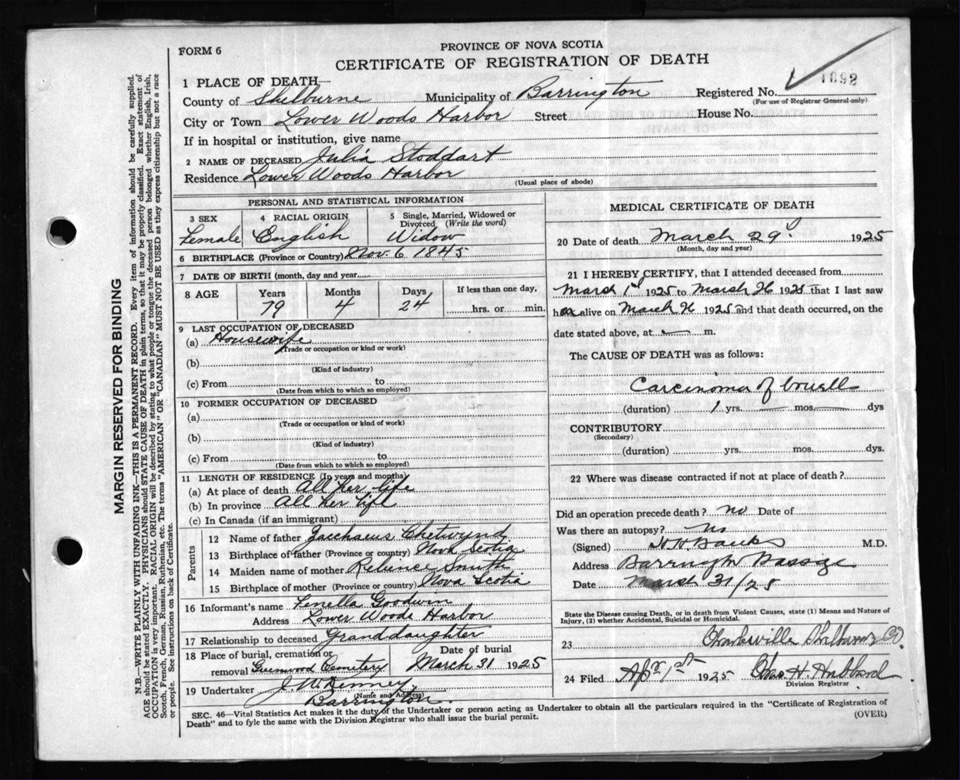 PROVINCE OF NOVA SCOTIA
FORM 6
CERTIFICATE OF REGISTRATION OF DEATH
1 PLACE OF DEATH
Registered No. 1692
County of Shelburne Municipality of Barrington
(For use of Registrar General only)
City or Town Lower Woods Harbor Street House No.
If in hospital or institution, give name
2 NAME OF DECEASED Julia Stoddart
Residence Lower Woods Harbor
(Usual place of abode)
PERSONAL AND STATISTICAL INFORMATION
3 SEX 4 RACIAL ORIGIN 5 Single, Married, Widowed or Divorced (Write the word)
Female English Widow
6 BIRTHPLACE (Province or Country) Nov. 6. 1845
7 DATE OF BIRTH (month, day and year)
8 AGE Years Months Days If less than one day,
79 4 24 hrs. or min.
9 LAST OCCUPATION OF DECEASED
(a) Housewife
(Trade or occupation or kind or work)
(b)
(Kind of industry)
(c) From to
(Date from which to which so employed)
10 FORMER OCCUPATION OF DECEASED
(a)
(Trade or occupation or kind or work)
(b)
(Kind of industry)
(c) From to
(Date from which to which so employed)
11 LENGTH OF RESIDENCE (In years and months)
(a) At place of death All her life
(b) In province All her life
(c) In Canada (if an immigrant)
Parents
12 Name of father Zacchaeus Chetwynd
13 Birthplace of father (Province or country) Nova Scotia
14 Maiden name of mother Relience Smith
15 Birthplace of mother (Province or country) Nova Scotia
16 Informant's name Goodwin
Address Lower Woods Harbor
17 Relationship to deceased Granddaughter
18 Place of burial, cremation or removal Cemetery
Date of burial March 31 1925
19 Undertaker J. W. Kenney
(Name and Address)
Barrington
MEDICAL CERTIFICATE OF DEATH
20 Date of death March 29 1925
(Month, day and year)
21 I HEREBY CERTIFY, that I attended deceased from
March 1st 1925 to March 26 1925 that I last saw
her alive on March 26 1925 and that death occurred, on the
date stated above, at m.
The CAUSE OF DEATH was as follows:
Carcinoma of bowell
(duration) 1 yrs. mos. dys
CONTRIBUTORY
(Secondary)
(duration) yrs. mos. dys.
22 Where was disease contracted if not at place of death?
Did an operation precede death? no Date of
Was there an autopsy? No
(Signed) Banks M.D.
Address Barrington Passage
Date March 31/25
State the Disease causing Death, or in death from Violent Causes, state (1) Means and Nature of
Injury, (2) whether Accidental, Suicidal or Homicidal.
23 Shelburne Co.
24 Filed Apr 1st 1925 Chas. H.
Division Registrar
SEC. 46—Vital Statistics Act makes it the duty of the Undertaker or person acting as Undertaker to obtain all the particulars required in the "Certificate of Registration of
Death" and to fyle the same with the Division Registrar who shall issue the burial permit.
(OVER)
MARGIN RESERVED FOR BINDING
N.B.—WRITE PLAINLY WITH UNFADING INK—THIS IS A PERMANENT RECORD. Every item of information should be carefully supplied.
AGE should be stated EXACTLY. PHYSICIANS should STATE CAUSE OF DEATH in plain terms, so that it may be properly classified. Exact statement of
OCCUPATION is very important. RACIAL ORIGIN will be described by stating to what people or tongue the deceased person belonged whether English, Irish,
Scotch, French, German, Russian, Ruthenian, etc. The terms "AMERICAN" OR "CANADIAN" MUST NOT BE USED as they express citizenship but not a race
or people. See instructions on back of Certificate.